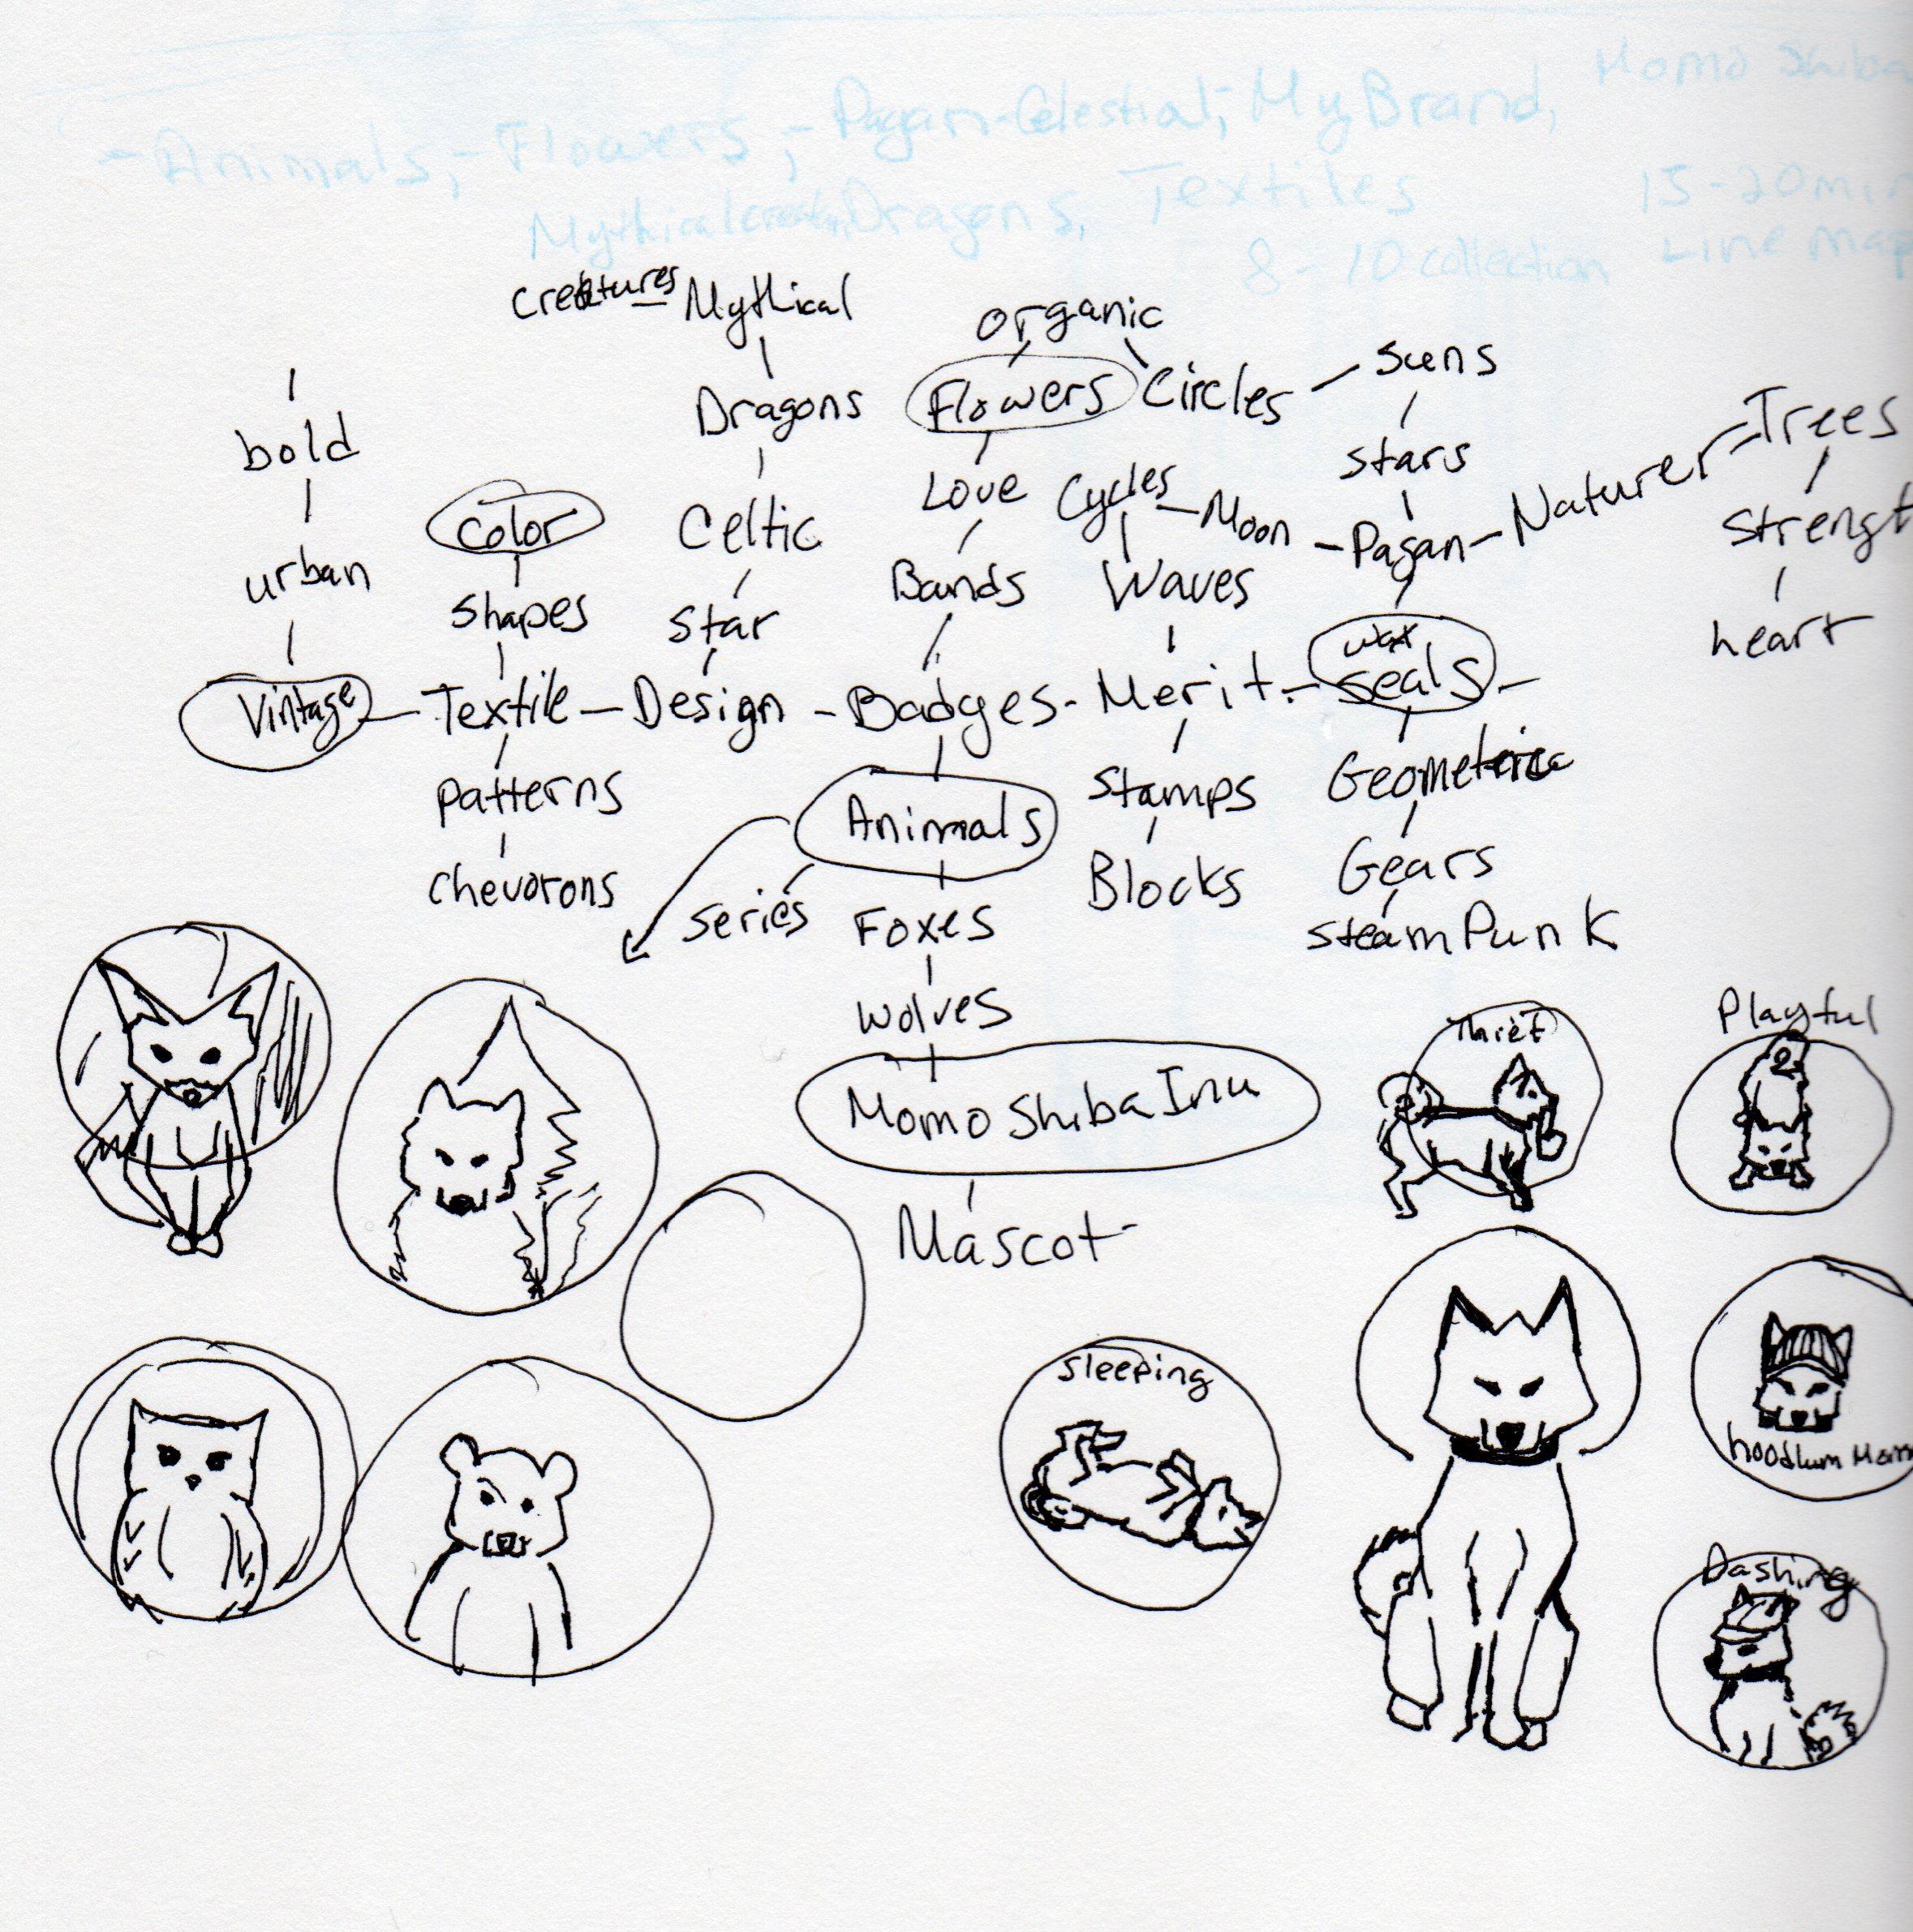 Momo Shiba
- Animals, - Flowers, - Pagan-Celestial, - My Brand,
Mythical Dragons, Textiles
15-20 min
8-10 collection Line Map
Creatures Mythical
organic
Suns
Dragons
Flowers Circles
Trees
bold
stars
Love Cycles - Moon - Pagan - Naturer
Color
Celtic
Strengt
urban
Bands
Waves
Shapes
Star
wax
heart
Vintage - Textile - Design - Badges - Merit - Seals -
Patterns
Stamps
Geometric
Animals
Chevorons
Blocks
Gears
Series
Foxes
SteamPunk
Wolves
Thief
Playful
Momo Shiba Inu
Mascot
Sleeping
hoodlum
Dashing